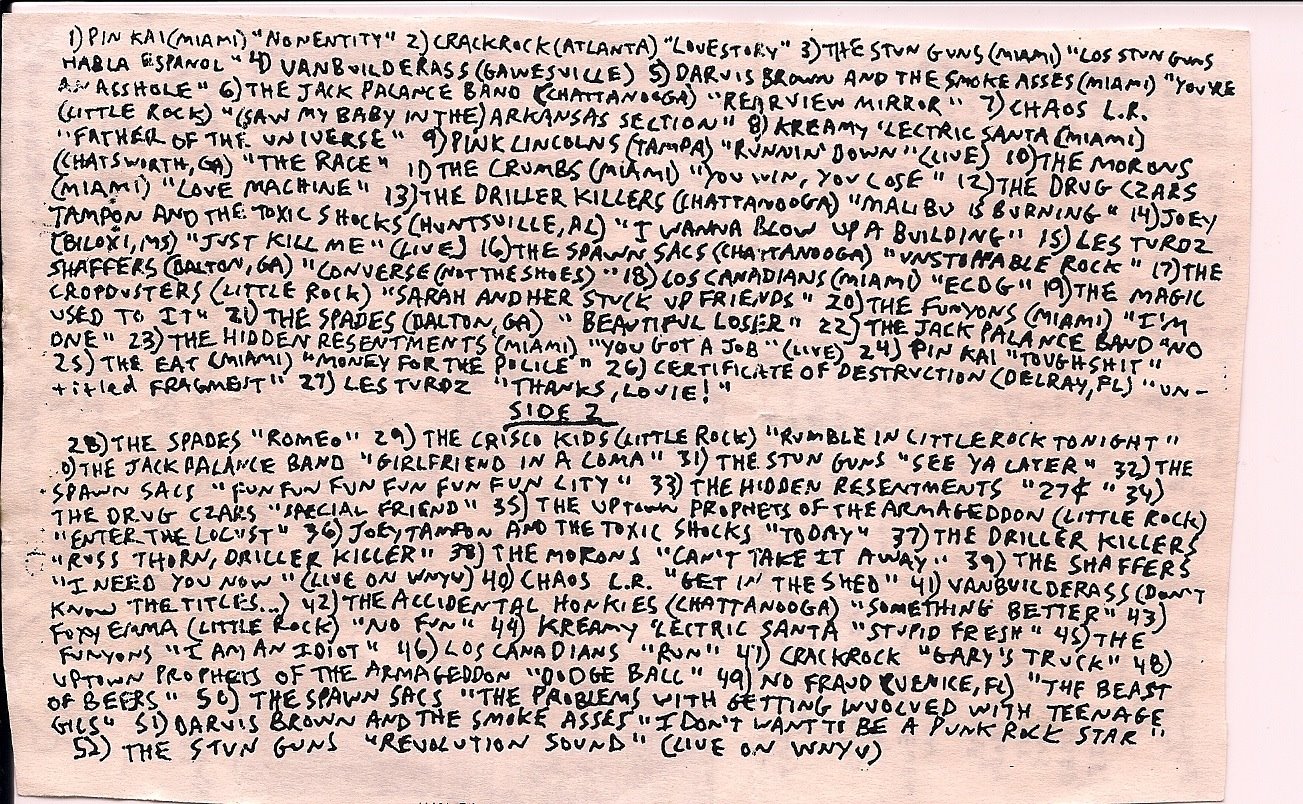 1) PIN KAI (MIAMI) "NONENTITY" 2) CRACKROCK (ATLANTA) "LOVESTORY" 3) THE STUN GUNS (MIAMI) "LOS STUN GUNS
HABLA ESPANOL" 4) VANBUILDERASS (GAWESVILLE) 5) DARVIS BROWN AND THE SMOKE ASSES (MIAMI) "YOU'RE
AN ASSHOLE" 6) THE JACK PALANCE BAND (CHATTANOOGA) "REARVIEW MIRROR" 7) CHAOS L.R.
(LITTLE ROCK) "(SAW MY BABY IN THE) ARKANSAS SECTION" 8) KREAMY 'LECTRIC SANTA (MIAMI)
"FATHER OF THE UNIVERSE" 9) PINK LINCOLNS (TAMPA) "RUNNIN' DOWN" (LIVE) 10) THE MORONS
(CHATSWORTH, GA) "THE RACE" 11) THE CRUMBS (MIAMI) "YOU WIN, YOU LOSE" 12) THE DRUG CZARS
(MIAMI) "LOVE MACHINE" 13) THE DRILLER KILLERS (CHATTANOOGA) "MALIBU IS BURNING" 14) JOEY
TAMPON AND THE TOXIC SHOCKS (HUNTSVILLE, AL) "I WANNA BLOW UP A BUILDING" 15) LES TURDZ
(BILOXI, MS) "JUST KILL ME" (LIVE) 16) THE SPAWN SACS (CHATTANOOGA) "UNSTOPPABLE ROCK" 17) THE
SHAFFERS (DALTON, GA) "CONVERSE (NOT THE SHOES)" 18) LOS CANADIANS (MIAMI) "ECDG" 19) THE MAGIC
CROPDUSTERS (LITTLE ROCK) "SARAH AND HER STUCK UP FRIENDS" 20) THE FUNYONS (MIAMI) "I'M
USED TO IT" 21) THE SPADES (DALTON, GA) "BEAUTIFUL LOSER" 22) THE JACK PALANCE BAND "NO
ONE" 23) THE HIDDEN RESENTMENTS (MIAMI) "YOU GOT A JOB" (LIVE) 24) PIN KAI "TOUGH SHIT"
25) THE EAT (MIAMI) "MONEY FOR THE POLICE" 26) CERTIFICATE OF DESTRUCTION (DELRAY, FL) "UN-
titled FRAGMENT" 27) LES TURDZ "THANKS, LOUIE!"
SIDE 2
28) THE SPADES "ROMEO" 29) THE CRISCO KIDS (LITTLE ROCK) "RUMBLE IN LITTLE ROCK TONIGHT"
0) THE JACK PALANCE BAND "GIRLFRIEND IN A COMA" 31) THE STUN GUNS "SEE YA LATER" 32) THE
SPAWN SACS "FUN FUN FUN FUN FUN FUN CITY" 33) THE HIDDEN RESENTMENTS "27¢" 34)
THE DRUG CZARS "SPECIAL FRIEND" 35) THE UPTOWN PROPHETS OF THE ARMAGEDDON (LITTLE ROCK)
"ENTER THE LOCUST" 36) JOEY TAMPON AND THE TOXIC SHOCKS "TODAY" 37) THE DRILLER KILLERS
"RUSS THORN, DRILLER KILLER" 38) THE MORONS "CAN'T TAKE IT AWAY" 39) THE SHAFFERS
"I NEED YOU NOW" (LIVE ON WNYU) 40) CHAOS L.R. "GET IN THE SHED" 41) VANBUILDERASS (DON'T
KNOW THE TITLES...) 42) THE ACCIDENTAL HONKIES (CHATTANOOGA) "SOMETHING BETTER" 43)
FOXY EMMA (LITTLE ROCK) "NO FUN" 44) KREAMY 'LECTRIC SANTA "STUPID FRESH" 45) THE
FUNYONS "I AM AN IDIOT" 46) LOS CANADIANS "RUN" 47) CRACKROCK "GARY'S TRUCK" 48)
UPTOWN PROPHETS OF THE ARMAGEDDON "DODGE BALL" 49) NO FRAUD (VENICE, FL) "THE BEAST
OF BEERS" 50) THE SPAWN SACS "THE PROBLEMS WITH GETTING INVOLVED WITH TEENAGE
GILS" 51) DARVIS BROWN AND THE SMOKE ASSES "I DON'T WANT TO BE A PUNK ROCK STAR"
52) THE STUN GUNS "REVOLUTION SOUND" (LIVE ON WNYU)